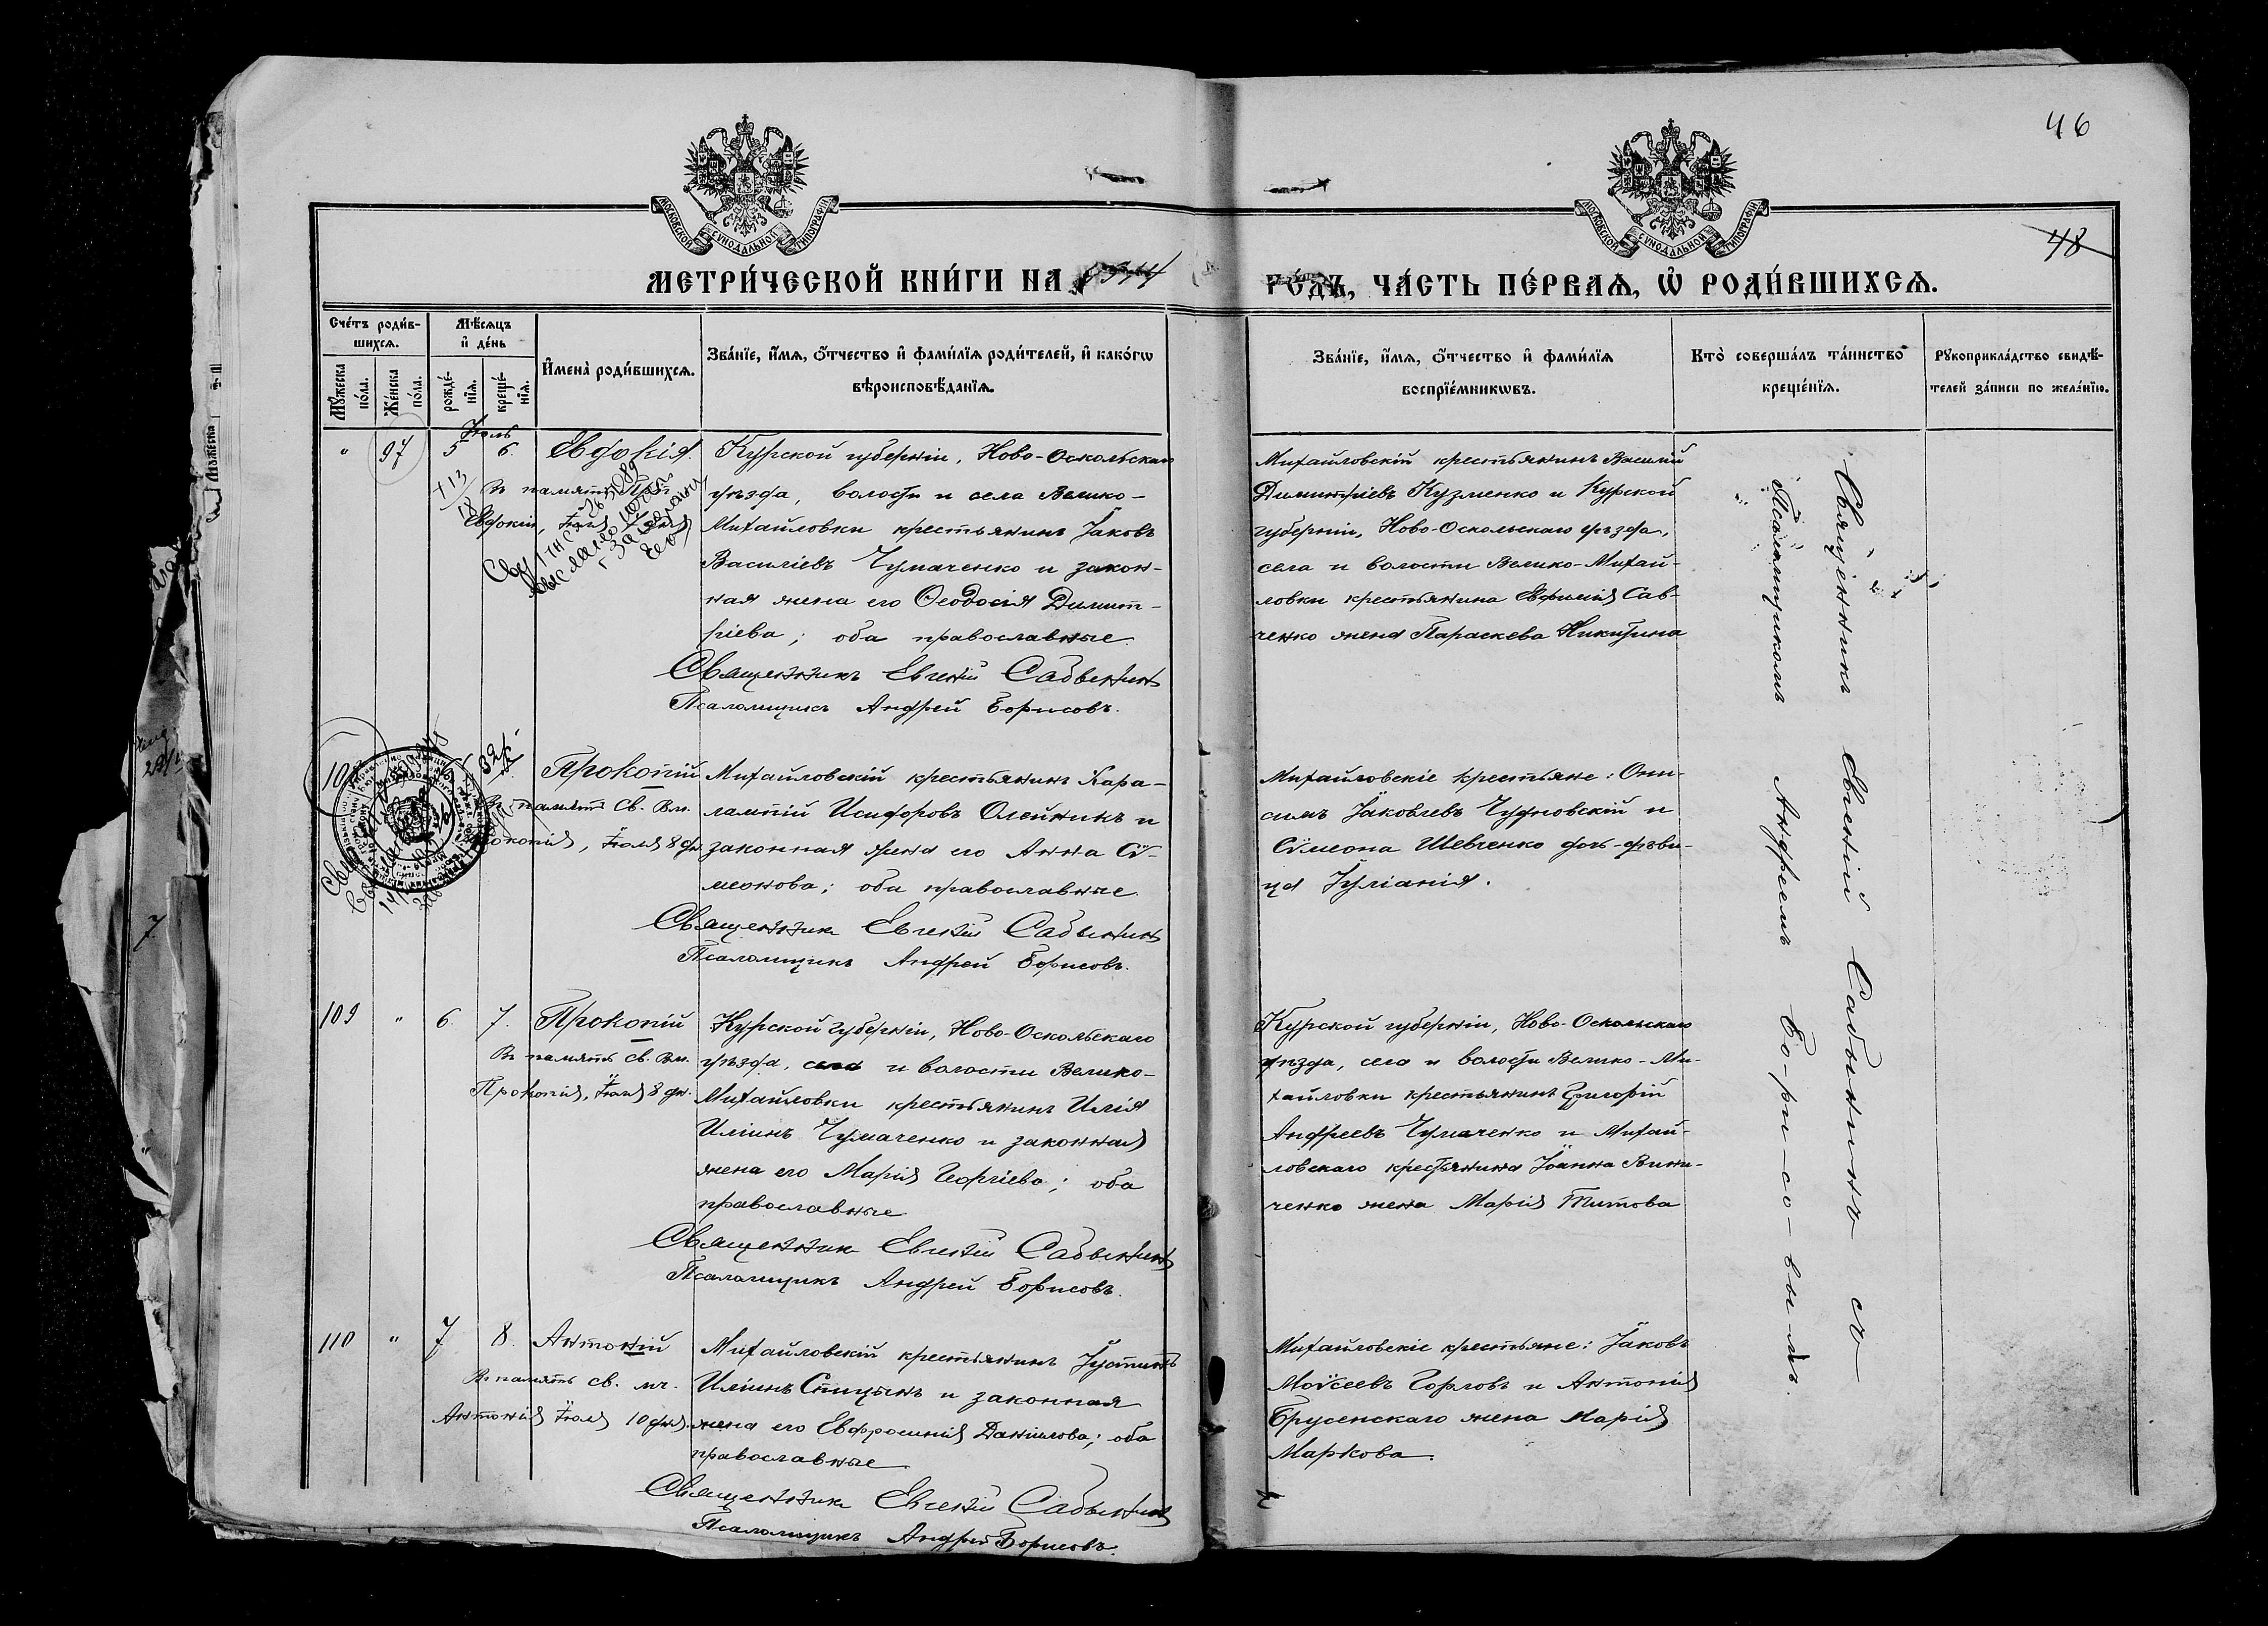 46
48
МОСКОВСКОЙ СѴНОДАЛЬНОЙ ТИПОГРАФІИ
МОСКОВСКОЙ СѴНОДАЛЬНОЙ ТИПОГРАФІИ
МЕТРИ́ЧЕСКОЙ КНИ́ГИ НА 1914 ГО́ДЪ, ЧА́СТЬ ПЕ́РВАѦ, Ѡ҆ РОДИ́ВШИХСѦ.
Сче́тъ роди́в-
шихсѧ.
Мꙋ́жеска по́ла.
Же́нска по́ла.
Мѣ́сѧцъ
и҆ де́нь
рожде́-
нїѧ.
креще́-
нїѧ.
И҆мена̀ роди́вшихсѧ.
Зва́нїе, и҆́мѧ, ѻ҆́тчество и҆ фами́лїѧ роди́телей, и҆ како́гѡ
вѣроисповѣ́данїѧ.
Зва́нїе, и҆́мѧ, ѻ҆́тчество и҆ фами́лїѧ
воспрїе́мникѡвъ.
Кто̀ соверша́лъ та́инство
креще́нїѧ.
Рꙋкоприкла́дство свидѣ́-
телей за́писи по жела́нїю.
Іюль
" 97 5 6. Евдокія.
Въ память Прп.
Евдокіи, Іюля
Курской губерніи, Ново-Оскольскаго
уѣзда, волости и села Велико-
Михайловки крестьянинъ Іаковъ
Василіевъ Чумаченко и закон-
ная жена его Ѳеодосія Димит-
ріева; оба православные.
Священникъ Евгеній Сабынин
Псаломщикъ Андрей Борисовъ.
Михайловскій крестьянинъ Василій
Димитріевъ Кузменко и Курской
губерніи, Ново-Оскольскаго уѣзда,
села и волости Велико-Михай-
ловки крестьянина Евфимія Сав-
ченко жена Параскева Никитина
Прокопій
Въ память Св. Вм.
Прокопія, Іюля 8 дн.
Михайловскій крестьянинъ Хара-
лампій Исидоровъ Олейникъ и
законная жена его Анна Сѵ-
меонова; оба православные.
Священник Евгеній Сабынин
Псаломщикъ Андрей Борисовъ.
Михайловскіе крестьяне: Они-
симъ Іаковлевъ Чудновскій и
Сѵмеона Шевченко дочь-дѣви-
ца Іуліанія.
109 " 6. 7. Прокопій
Въ память Св. Вм.
Прокопія, Іюля 8 дн.
Курской губерніи, Ново-Оскольскаго
уѣзда, села и волости Велико-
Михайловки крестьянинъ Илія
Иліинъ Чумаченко и законная
жена его Марія Георгіева; оба
православные
Священник Евгеній Сабынин
Псаломщикъ Андрей Борисовъ.
Курской губерніи, Ново-Оскольскаго
уѣзда, села и волости Велико-Ми-
хайловки крестьянинъ Григорій
Андреевъ Чумаченко и Михай-
ловскаго крестьянина Іоанна Вини-
ченко жена Марія Титова
110 " 7 8. Антоній
Въ память св. мч.
Антонія Іюля 10 дня.
Михайловскій крестьянинъ Іустинъ
Иліинъ Спицынъ и законная
жена его Евфросинія Даніилова; оба
православные
Священник Евгеній Сабынин
Псаломщикъ Андрей Борисовъ.
Михайловскіе крестьяне: Іаковъ
Моѵсеевъ Горловъ и Антонія
Брусенскаго жена Марія
Маркова.
Священникъ Евгеній Сабынинъ съ
Псаломщикомъ Андреемъ Бо-ри-со-вымъ.